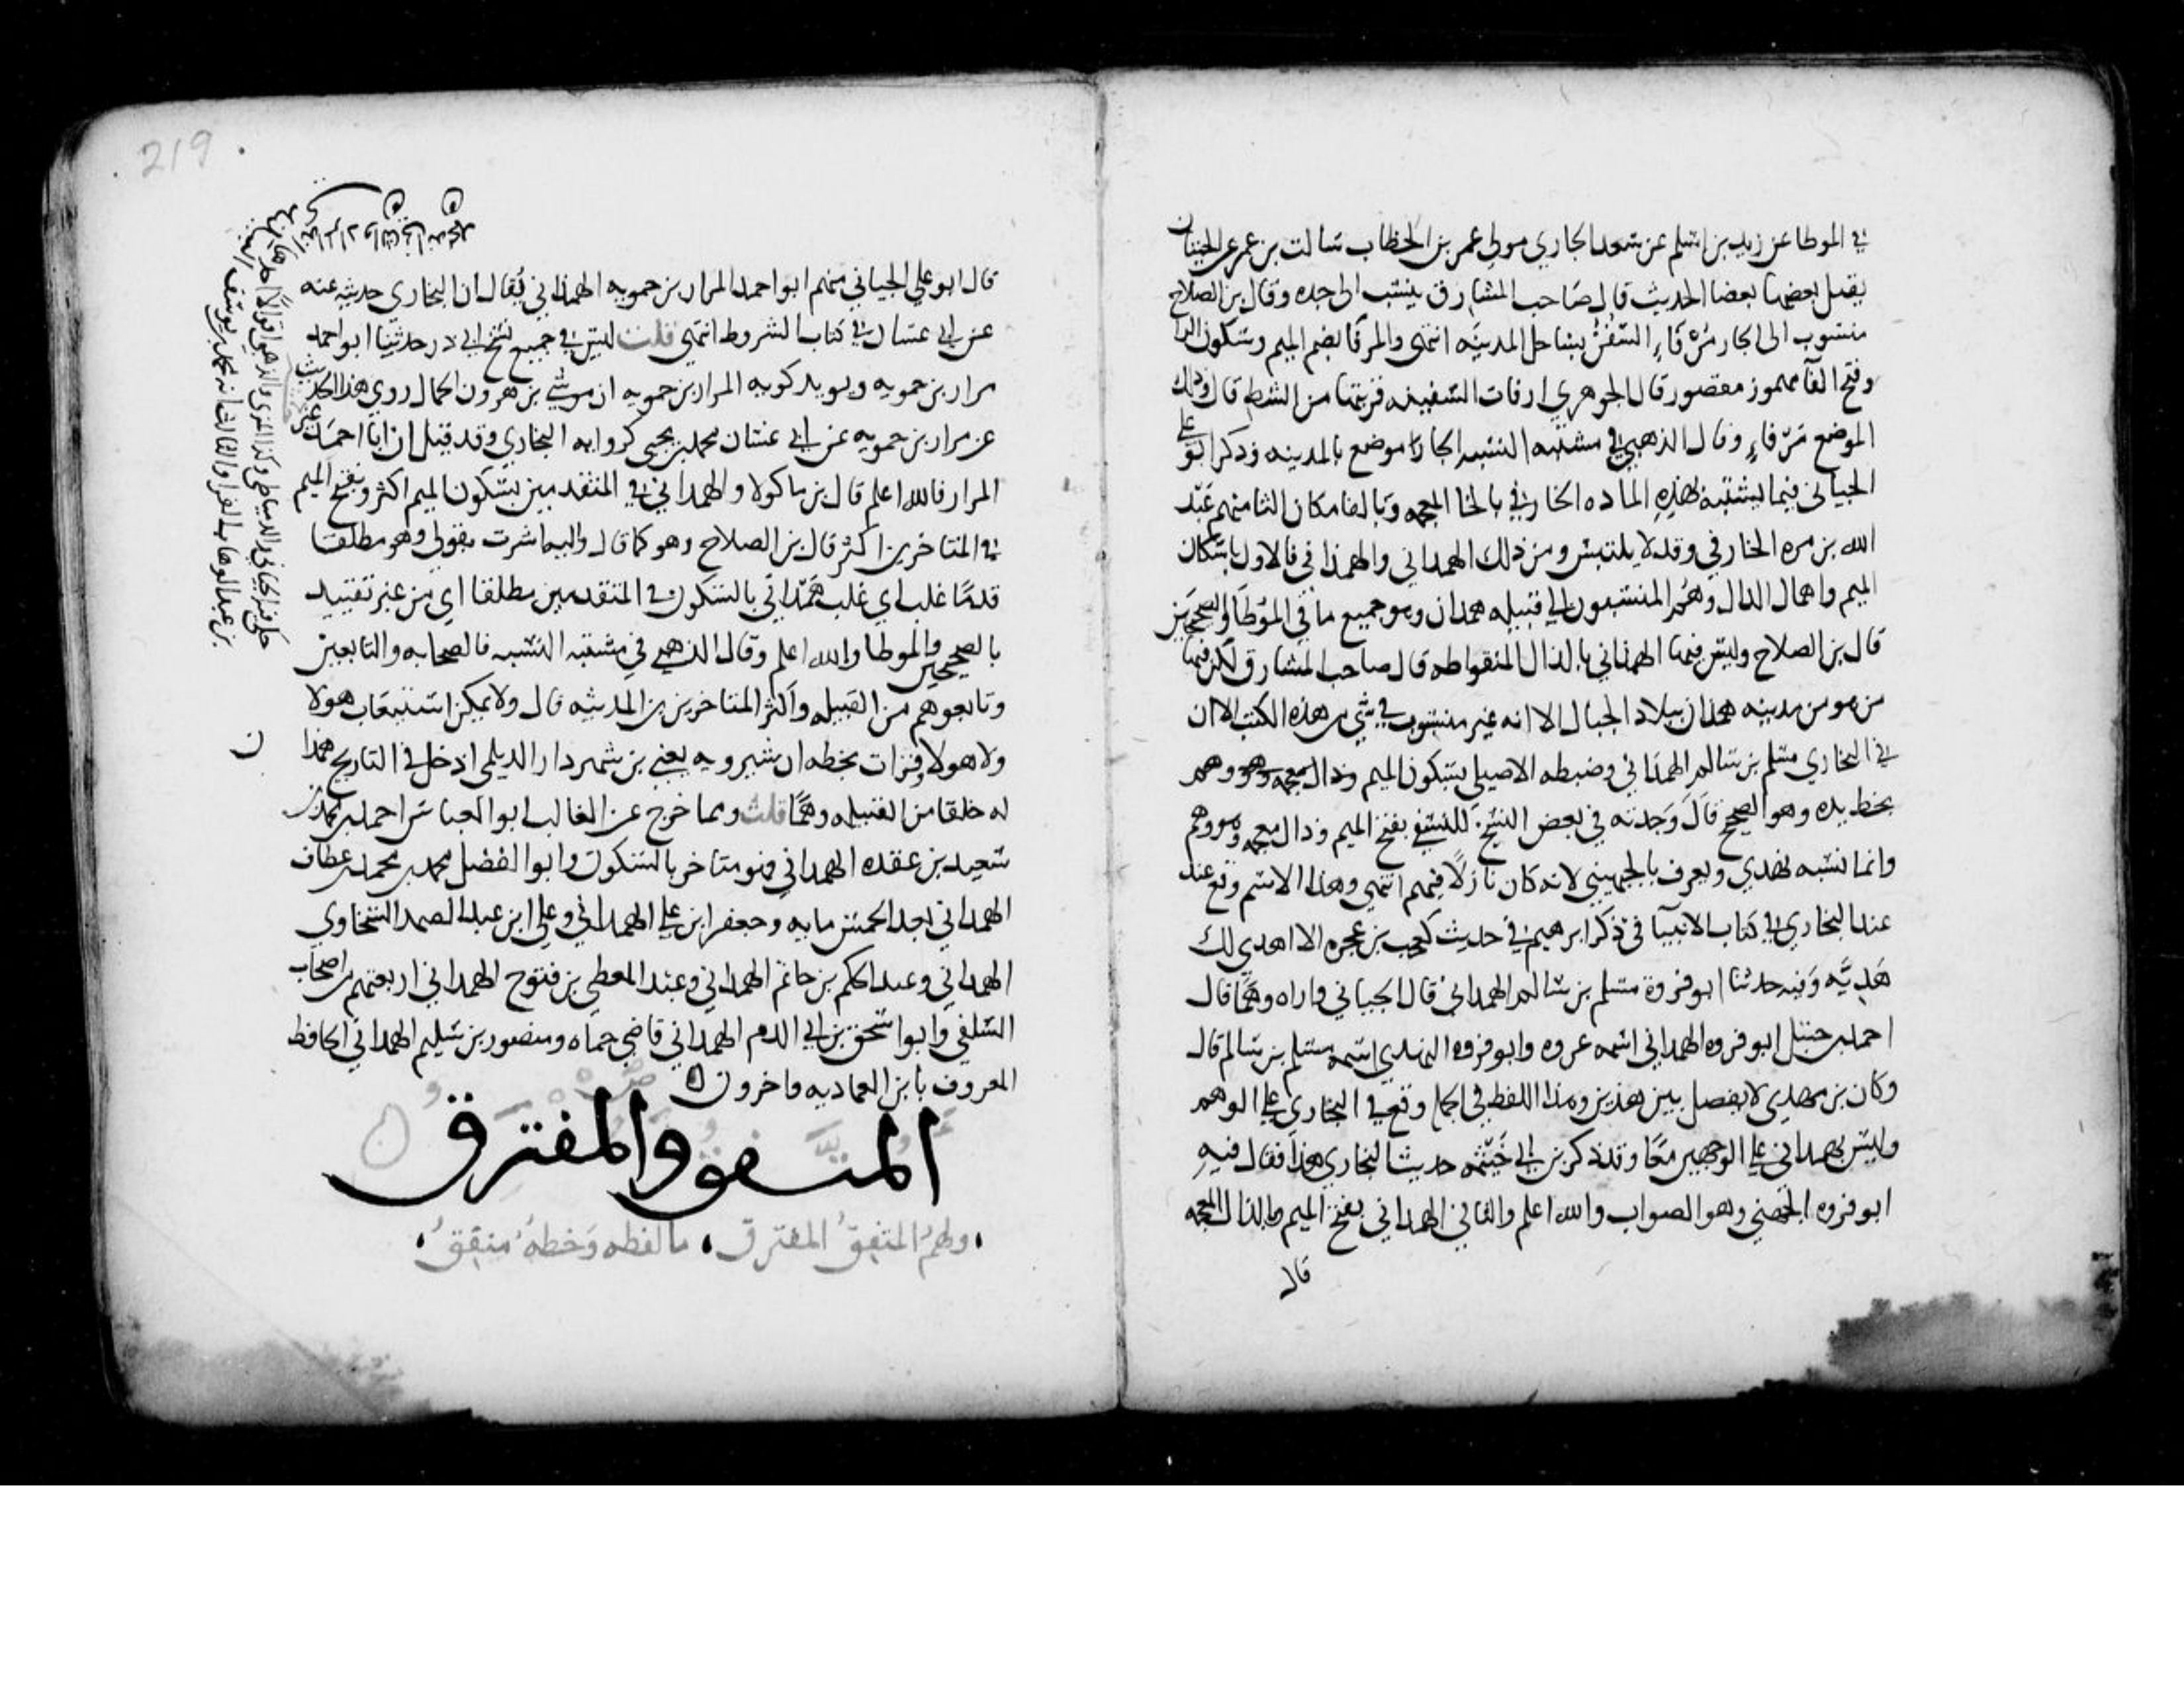 في الموطا عن زيد بن اسلم عن سعد الجاري مولى عمر بن الخطاب سالت بن عمر عن الحيتان
يقتل بعضها بعضا الحديث قال صاحب المشارق ينسب الى جده وقال بن الصلاح
منسوب الى الجار مرفاء السفن بساحل المدينه انتهى والمرفا بضم الميم وسكون الرا
وفتح الفا مهموز مقصور قال الجوهري ارفات السفينه قربتها من الشط قال وذلك
الموضع مرفاء وقال الذهبي في مشتبه النسبه الجار موضع بالمدينه وذكر ابو علي
الجياني فيما يشتبه بهذه الماده الخارفي بالخا المعجمه وبالفا مكان الثا منهم عبد
الله بن مره الخارفي وقد لا يلتبس ومن ذلك الهمداني والهمذاني فالاول باسكان
الميم واهمال الدال وهم المنتسبون الى قبيله همدان وهو جميع ما في الموطا والصحيحين
قال بن الصلاح وليس فيها الهمذاني بالذال المنقوطه قال صاحب المشارق لكن فيها
من هو من مدينه همذان ببلاد الجبال الا انه غير منسوب في شي من هذه الكتب الا ان
في البخاري مسلم بن سالم الهمداني وضبطه الاصيلي بسكون الميم وذال معجمه وهو وهم
بخط يده وهو الصحيح قال وجدته في بعض النسخ للنسفي بفتح الميم وذال معجمه وهو وهم
وانما نسبه نهدي ويعرف بالجهيني لانه كان نازلا فيهم انتهى وهذا الاسم وقع عند
عند البخاري في كتاب الانبيا في ذكر ابرهيم في حديث كعب بن عجره الا اهدي لك
هديه وفيه حدثنا ابو فروة مسلم بن سالم الهمداني قال الجياني واراه وهما قال
احمد بن حنبل ابو فروه الهمداني اسمه عروه وابو فروه النهدي اسمه مسلم بن سالم قال
وكان بن مهدي لا يفصل بين هذين وهذا اللفظ في الجملة وقع في البخاري على الوهم
وليس بهمداني على الوجهين معا وقد ذكر بن ابي خيثمه حديث البخاري هذا فقال فيه
ابو فروه الجهني وهو الصواب والله اعلم والثاني الهمذاني بفتح الميم وبالذال المعجمه
قال
219
قال ابو علي الجياني منهم ابو احمد المرار بن حمويه الهمذاني يقال ان البخاري حدث عنه
عن ابي غسان في كتاب الشروط انتهى قلت ليس في جميع نسخ ابي ذر حدثنا ابو احمد
مرار بن حمويه ويويد كونه المرار بن حمويه ان موسى بن هرون الحمال روى هذا الحديث
عن مرار بن حمويه عن ابي غسان محمد بن يحيى كروايه البخاري وقد قيل ان ابا احمد غير
المرار فالله اعلم قال بن ماكولا والهمداني في المتقدمين بسكون الميم اكثر وبفتح الميم
في المتاخرين اكثر قال بن الصلاح وهو كما قال واليه اشرت بقولي وهو مطلقا
قدما غلب اي غلب همداني بالسكون في المتقدمين مطلقا اي من غير تقييد
بالصحيحين والموطا والله اعلم وقال الذهبي في مشتبه النسبه فالصحابه والتابعين
وتابعوهم من القبيله واكثر المتاخرين من المدينه قال ولا يمكن استيعاب هولا
ولا هولا وقرات بخطه ان شيرويه يعني بن شهردار الديلمي ادخل في التاريخ همذان
له خلقا من القبيله وهما قلت ومما خرج عن الغالب ابو العباس احمد بن محمد بن
سعيد بن عقده الهمداني وهو متاخر بالسكون وابو الفضل محمد بن محمد بن عطاف
الهمداني بعد الخمس مايه وجعفر ابن علي الهمداني وعلي ابن عبد الصمد السخاوي
الهمداني وعبد الحكم بن حاتم الهمداني وعبد المعطي بن فتوح الهمداني اربعتهم من اصحاب
السلفي وابو اسحق بن ابي الدم الهمداني قاضي حماه ومنصور بن سليم الهمداني الحافظ
المعروف بابن العماديه واخرون
المتفق والمفترق
ولهم المتفق المفترق ، ما لفظه وخطه متفق ،